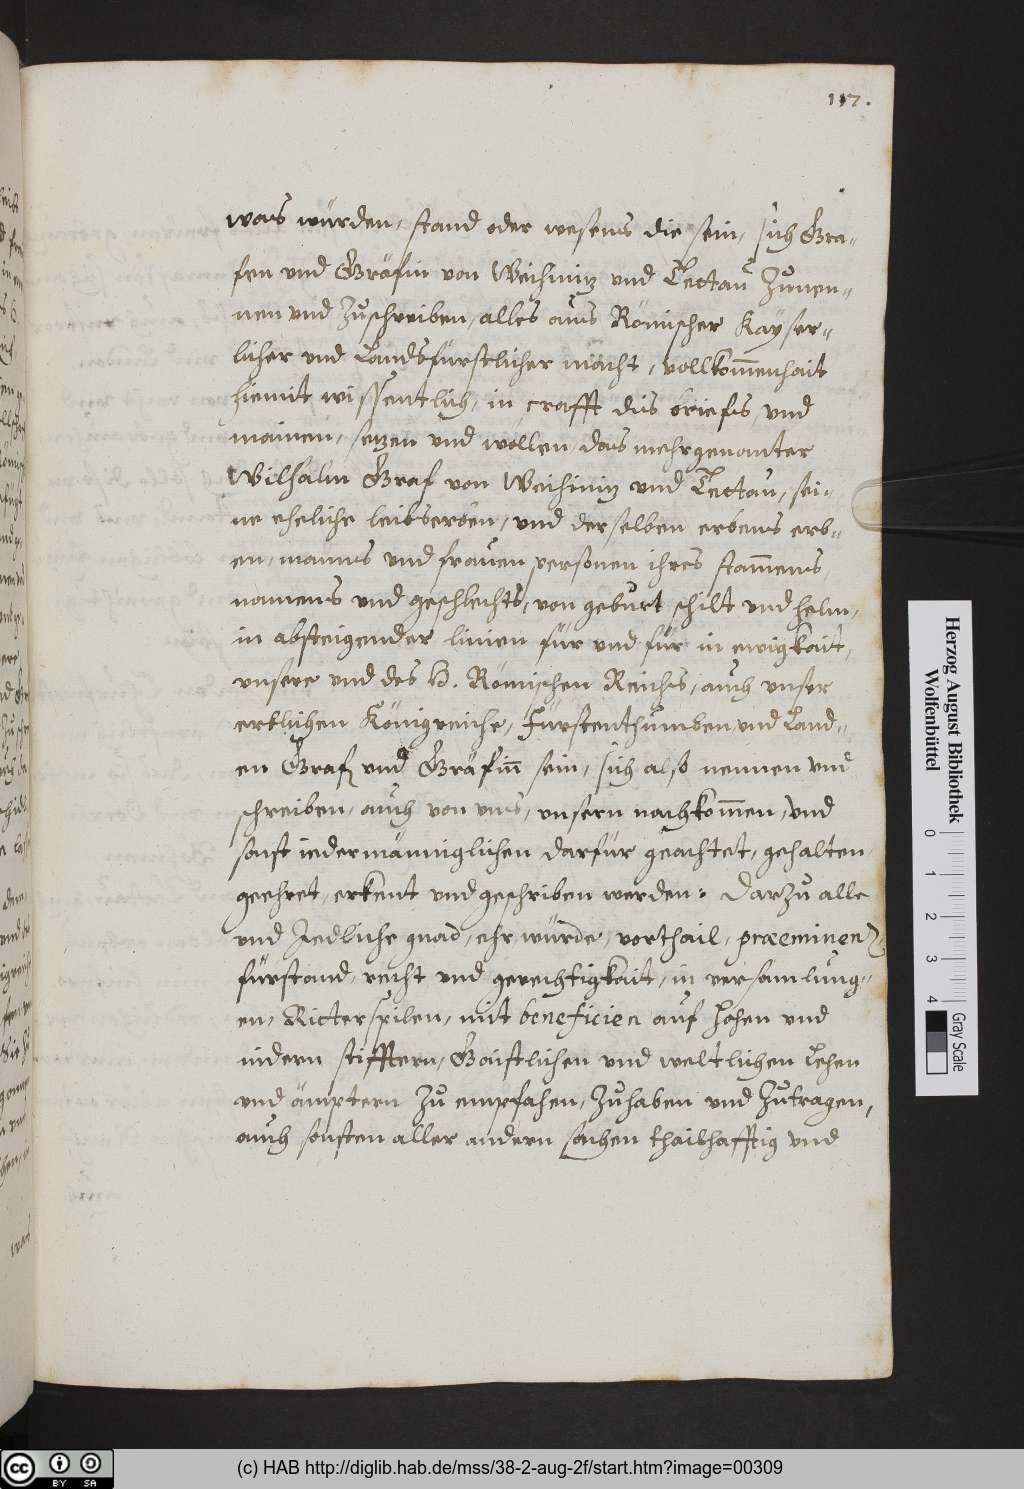 117.
was würden, stand oder wesens die sein, sich Gra-
fen und Gräfin von Wchinitz und Tettau zunen-
nen und zuschreiben, alles aus Römischer Kayser-
licher und Landsfürstlicher macht, vollkom̅enhait
hiemit wissentlich, in crafft dis briefs, und
mainen, sezen und wöllen, das mehrgenanter
Wilhalm Graf von Wchinitz und Tettau, sei-
ne eheliche leibserben, und derselben erbens erb-
en, manns und frauen personen ihres stam̅ens
namens und geschlechts, von geburt schilt und helm,
in absteigender linien für und für in ewigkait,
unsere und des H. Römischen Reichs, auch unser
erblichen Königreiche, Fürstenthumben und Land-
en Graf und Gräfin̅ sein, sich also nennen und
schreiben, auch von uns, unsern nachkom̅en, und
sonst iedermänniglichen darfür geachtet, gehalten
geehret, erkent und geschriben werden. Darzu alle
und Jedliche gnad, ehr, würde, vorthail, præeminenz
fürstand, recht und gerechtigkait, in versamlung-
en, Ritterspilen, mit beneficien auf hohen und
nidern stifftern, Gaistlichen und weltlichen Lehen
und ämptern zu empfahen, zuhaben und zutragen,
auch sonsten aller andern sachen thailhafftig und
Herzog August Bibliothek
Wolfenbüttel
0 1 2 3 4
Gray Scale
(c) HAB http://diglib.hab.de/mss/38-2-aug-2f/start.htm?image=00309
cc BY SA